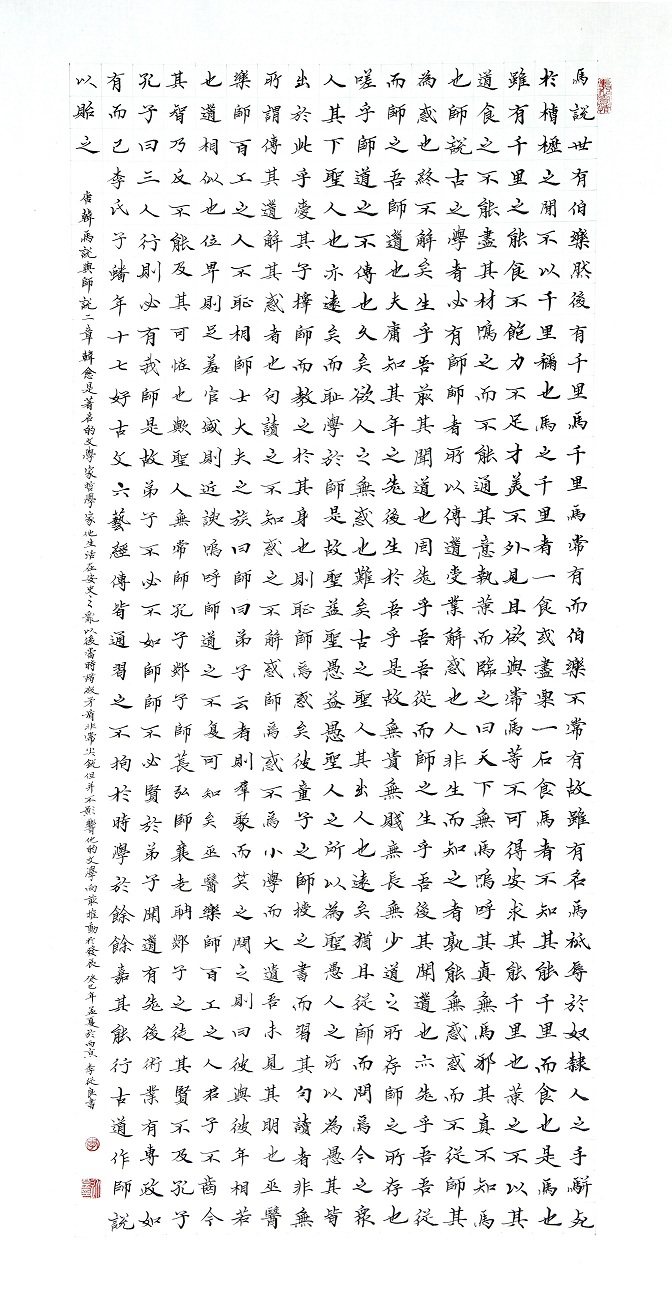 馬說世有伯樂然後有千里馬千里馬常有而伯樂不常有故雖有名馬祗辱於奴隸人之手駢死
於槽櫪之間不以千里稱也馬之千里者一食或盡粟一石食馬者不知其能千里而食也是馬也
雖有千里之能食不飽力不足才美不外見且欲與常馬等不可得安求其能千里也策之不以其
道食之不能盡其材鳴之而不能通其意執策而臨之曰天下無馬嗚呼其真無馬邪其真不知馬
也師說古之學者必有師師者所以傳道受業解惑也人非生而知之者孰能無惑惑而不從師其
為惑也終不解矣生乎吾前其聞道也固先乎吾吾從而師之生乎吾後其聞道也亦先乎吾吾從
而師之吾師道也夫庸知其年之先後生於吾乎是故無貴無賤無長無少道之所存師之所存也
嗟乎師道之不傳也久矣欲人之無惑也難矣古之聖人其出人也遠矣猶且從師而問焉今之衆
人其下聖人也亦遠矣而恥學於師是故聖益聖愚益愚聖人之所以為聖愚人之所以為愚其皆
出於此乎愛其子擇師而教之於其身也則恥師焉惑矣彼童子之師授之書而習其句讀者非無
所謂傳其道解其惑者也句讀之不知惑之不解惑師焉惑不焉小學而大遺吾未見其明也巫醫
樂師百工之人不恥相師士大夫之族曰師曰弟子云者則羣聚而笑之問之則曰彼與彼年相若
也道相似也位卑則足羞官盛則近諛嗚呼師道之不復可知矣巫醫樂師百工之人君子不齒今
其智乃反不能及其可怪也歟聖人無常師孔子郯子師萇弘師襄老聃郯子之徒其賢不及孔子
孔子曰三人行則必有我師是故弟子不必不如師師不必賢於弟子聞道有先後術業有專攻如
有而已李氏子蟠年十七好古文六藝經傳皆通習之不拘於時學於餘餘嘉其能行古道作師說
以貽之
唐韓馬說與師說二章韓愈是著名的文學家哲學家他生活在安史之亂以後當時階級矛盾非常尖銳但并不影響他的文學向前推動於發展癸巳年孟夏於西京李從良書